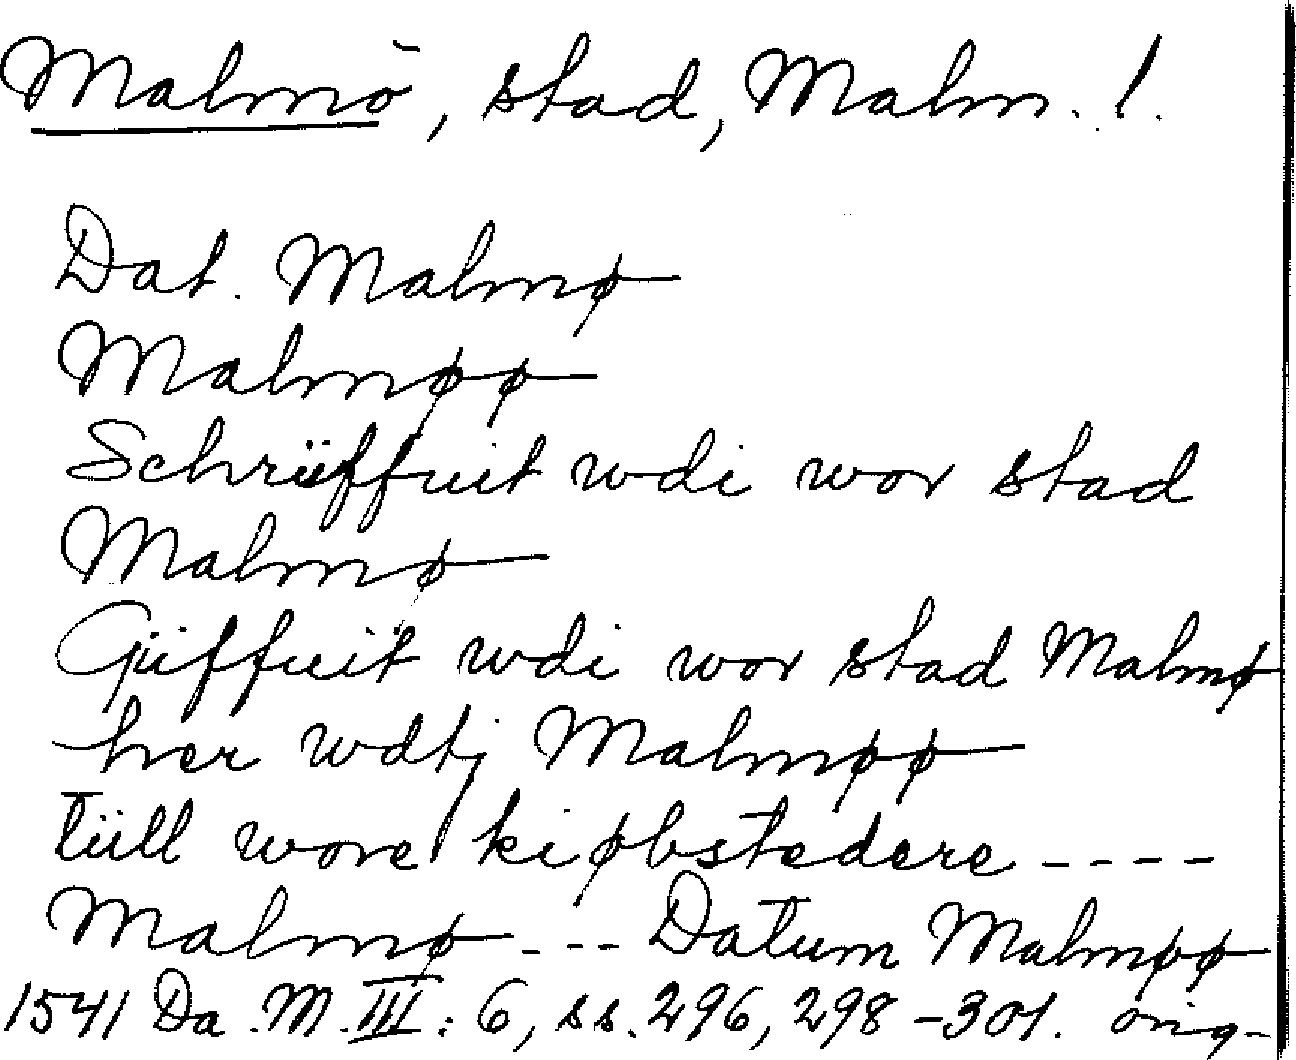 Malmö, stad, Malm. l.
Dat. Malmø
Malmøø
Schrüffuit wdi wor stad
Malmø
Güffuit wdi wor stad Malmø
her wdtj Malmøø
tüll wore kiøbstedere ----
Malmø --- Datum Malmøø
1541 Da. M. III: 6, ss. 296, 298-301. orig-